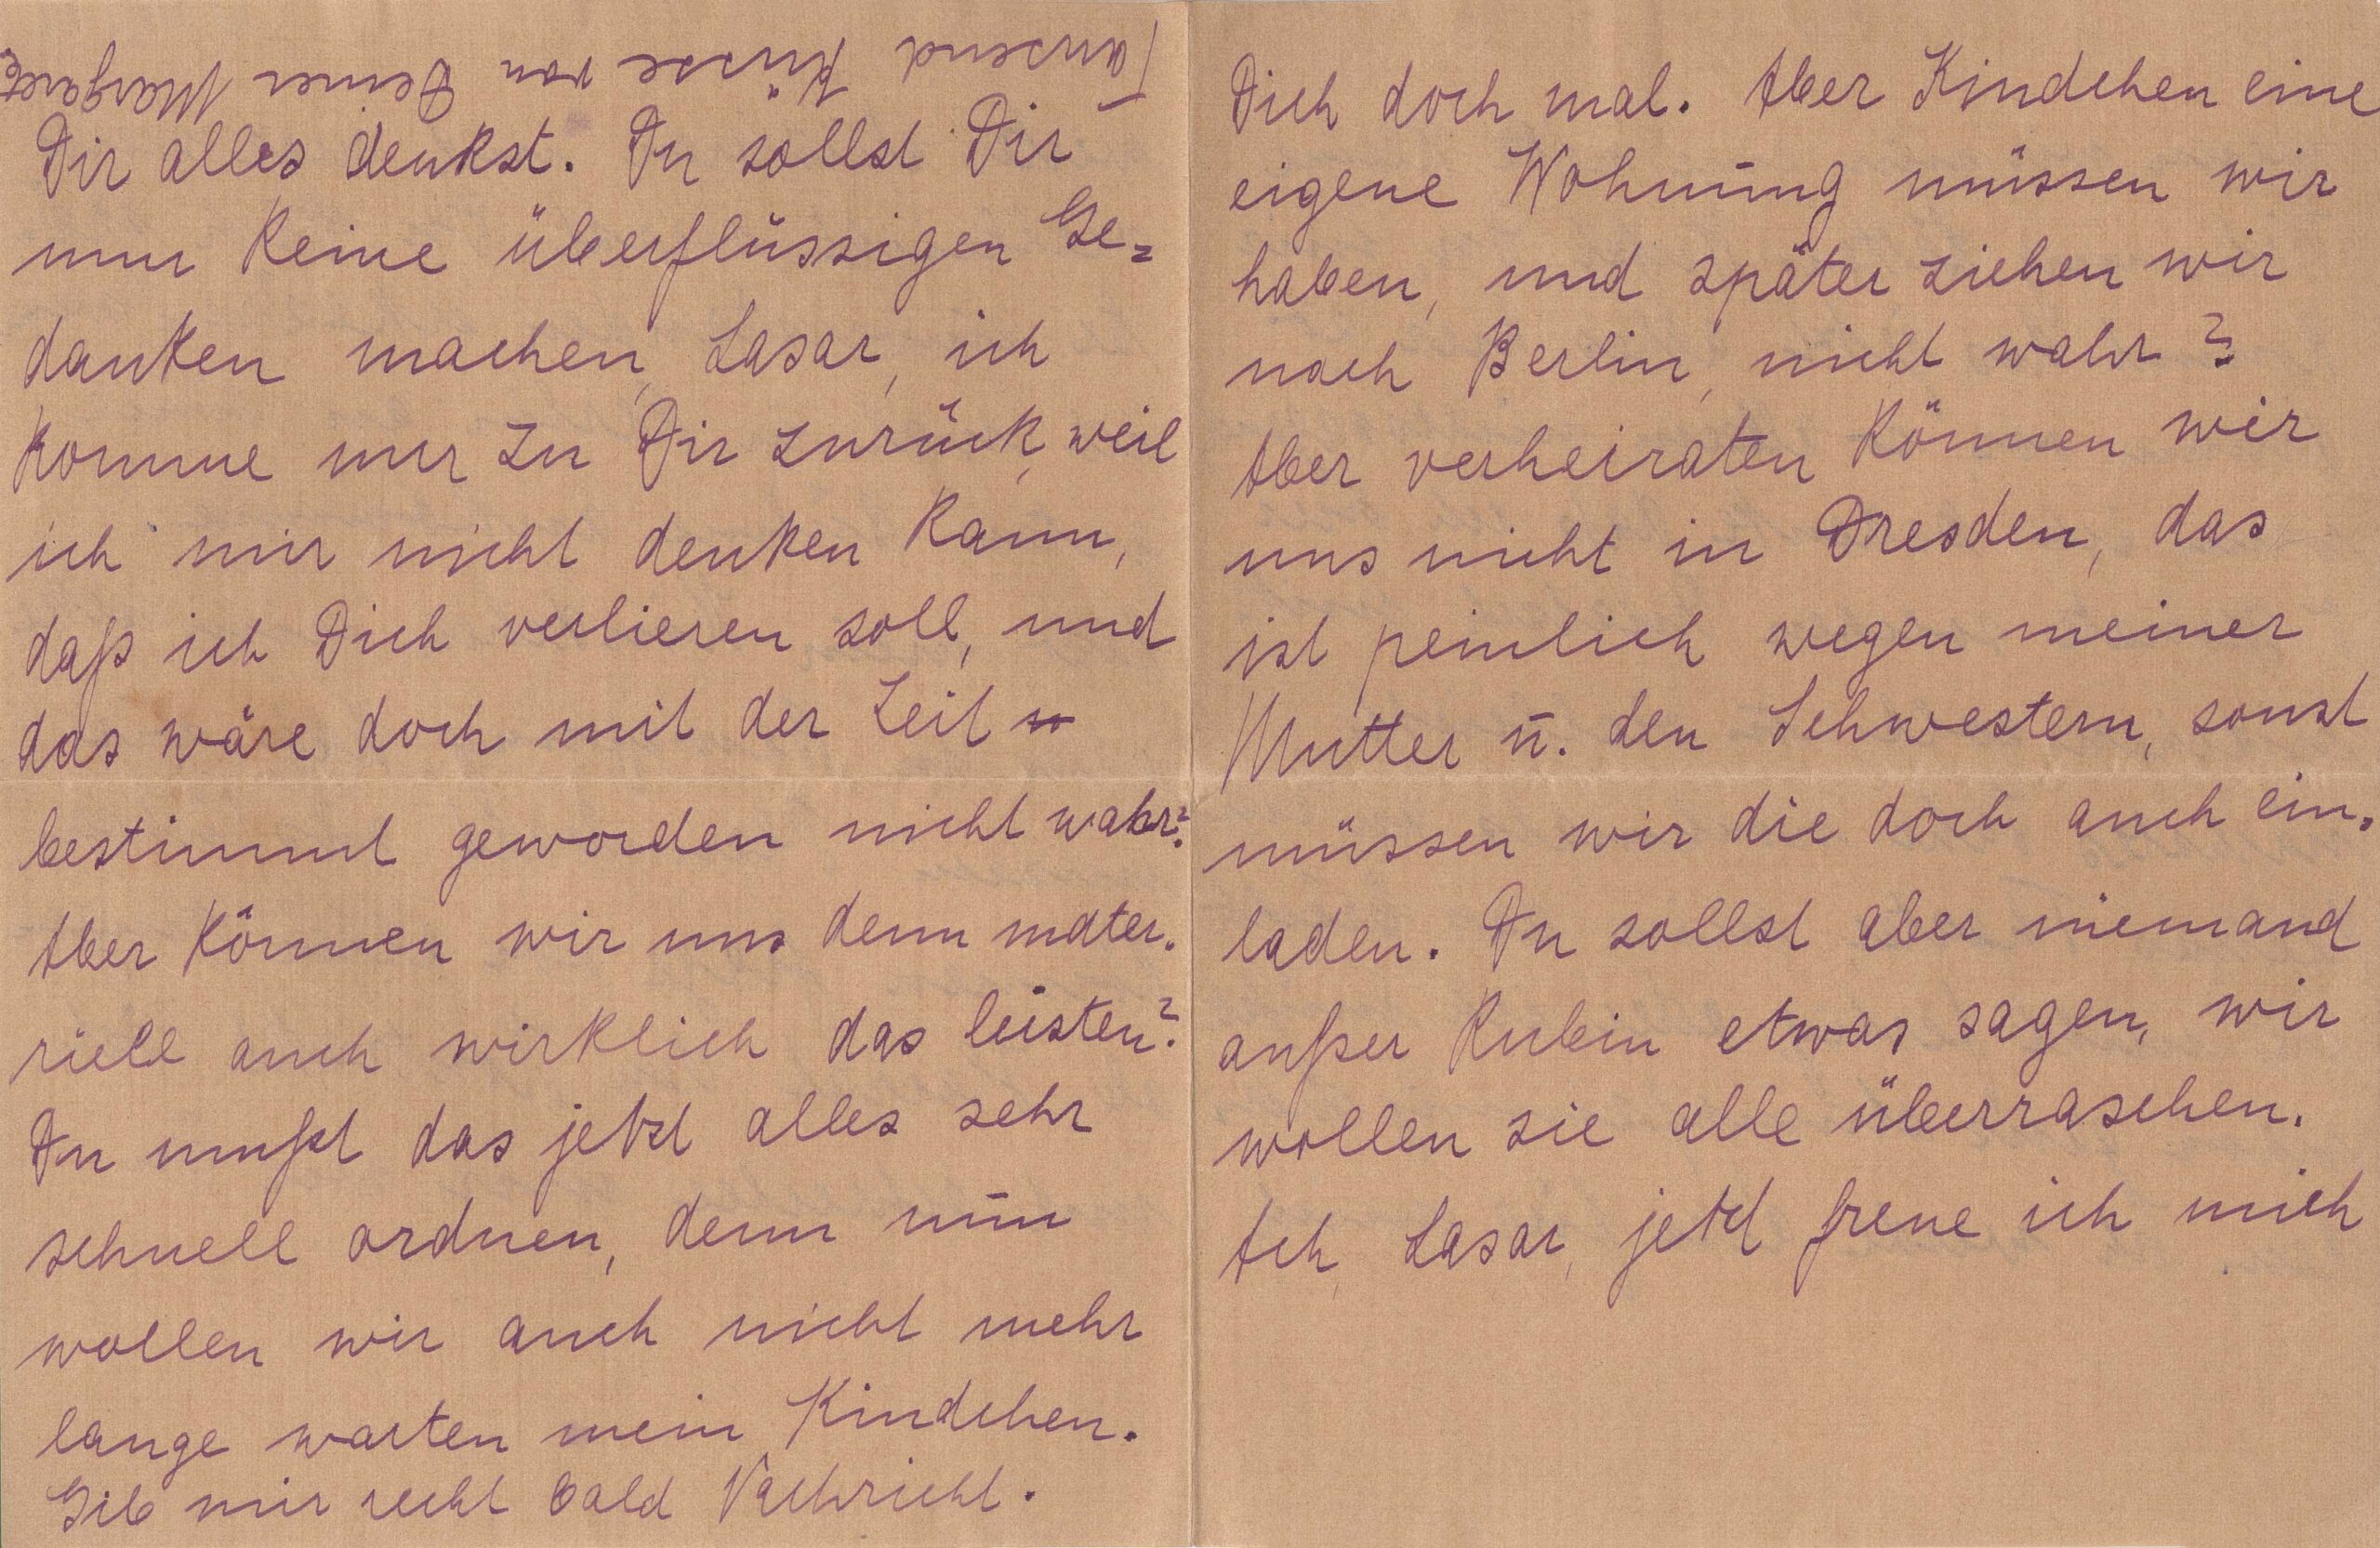 Tausend Küsse von Deiner Margarete
Dir alles denkst. Du sollst Dir
nun keine überflüssigen Ge=
danken machen, Lasar, ich
komme nur zu Dir zurück, weil
ich mir nicht denken kann,
daß ich Dich verlieren soll, und
das wäre doch mit der Zeit so
bestimmt geworden nicht wahr?
Aber können wir uns denn mater.
riell auch wirklich das leisten?
Du mußt das jetzt alles sehr
schnell ordnen, denn nun
wollen wir auch nicht mehr
lange warten mein Kindchen.
Gib mir recht bald Nachricht.
Dich doch mal. Aber Kindchen eine
eigene Wohnung müssen wir
haben, und später ziehen wir
nach Berlin, nicht wahr?
Aber verheiraten können wir
uns nicht in Dresden, das
ist peinlich wegen meiner
Mutter u. den Schwestern, sonst
müssen wir die doch auch ein.
laden. Du sollst aber niemand
außer Rubin etwas sagen, wir
wollen sie alle überraschen.
Ach, Lasar, jetzt freue ich mich